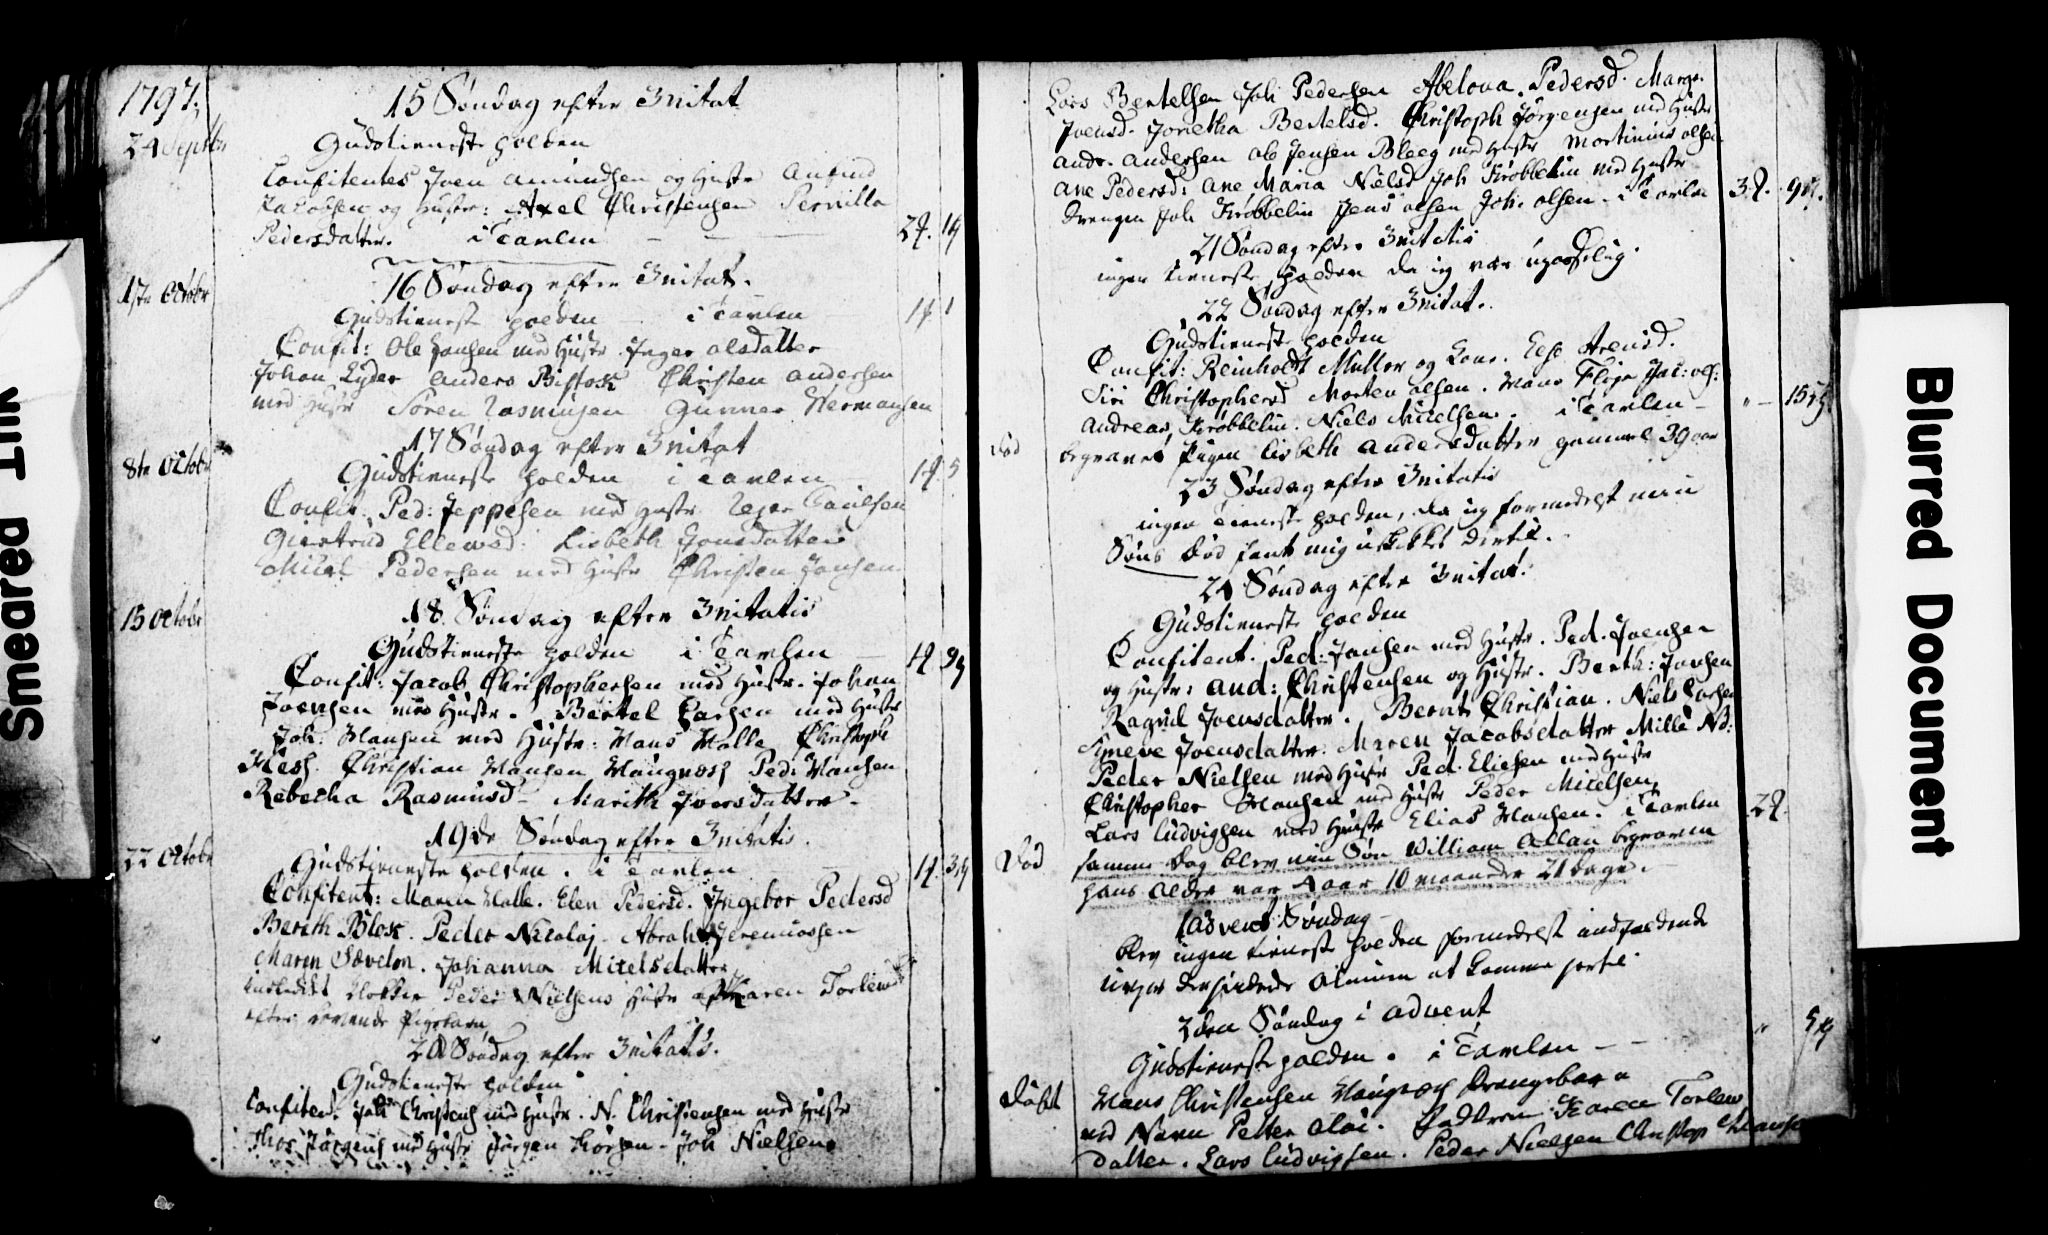 1797.
15 Søndag efter Trinitat
24 Septbr
Gudstieneste holden
Confitentes Joen Amundsen og Hustr Anfind
Jacobsen og Hustr: Axel Christensen Pernilla
Pedersdatter. i Tavlen — — 2 14
16 Søndag efter Trinitat.
1ste Octobr
Gudstieneste holden — i Tavlen 1 1
Confit: Ole Jonsen med Hustr Inger Olsdatter
Johan Lyder Anders Christen Andersen
med Hustr Søren Rasmusen Gunner Hermansen
17 Søndag efter Trinitat
8de Octobr
Gudstieneste holden i Tavlen 1 5
Confit: Ped: Jeppesen med Hustr
Giertrud Ellewsd: Lisbeth Jonsdatter
Micel Pedersen med Hustr Christen Jonsen
18 Søndag efter Trinitatis
15 Octobr
Gudstieneste holden i Tavlen — 1 9
Confit: Jacob Christophersen med Hustr. Johan
Joensen med Hustr. Bertel Larsen med Hustr
Joh: Hansen med Hustr: Hans Halle Christoph
Hesh. Christian Hansen Ped: Hansen
Rebecha Rasmusd — Marith Joersdatter.
19de Søndag efter Trinitatis.
22 Octobr
Gudstieneste holden. i Tavlen 1 3
Confitent: Maren Halle. Elen Pedersd. Ingebor Pedersd
Berith Blok. Peder Nicolaj. Abrah: Jeremiassen
Maren Sævelon. Johanna Micelsdatter
Peder Nielsens Hustr Karen Torlews
efter Pigebarn
20 Søndag efter Trinitatis.
Gudstieneste holden
Confitent. Joh Christens med Hustr. N. Christensen med Hustr
Thos Jørgens med Hustr Jørgen — Joh Nielsen
Lars Bertelsen Joh Pedersen Abelona. Pedersd. Margr.
Joensd. Joretha Bertelsd. Christoph Jørgensen med Hustr
Andr. Andersen Ole Jensen Bleeg med Hustr Mortinius Olsen
Ane Pedersd: Ane Maria Nielsd Joh Krøbbelin med Hustr
Drengen Joh Krøbbelin Jens Olsen Joh. Olsen. i Tavlen 3. 9
21 Søndag efter Trinitatis
ingen tieneste holden da jeg var upasselig.
22 Søndag efter Trinitat.
Gudstieneste holden
Confit: Reinholdt Muller og Kone. Else Arensd.
Siri Christophersd Morten Olsen. Hans Jac: Ols:
Andreas Krøbbelin. Niels Micelsen. i Tavlen — " — 15
Død begravet Pigen Lisbeth Andersdatter gammel 39 aar
23 Søndag efter Trinitatis
ingen tieneste holden, da jeg formedelst min
Søns Død fant mig uskikket dertil.
24 Søndag efter Trinitat:
Gudstieneste holden
Confitent. Ped: Jonsen med Hustr. Ped. Joensen
og Hustr: And: Christensen og Hustr. Berth: Joensen
Ragnil Joensdatter. Bernt Christian. Niels Larsen
Synneve Joensdatter. Maren Jacobsdatter Mille NB:
Peder Nielsen med Hustr Ped. Eliesen med Hustr
Christopher Hansen med Hustr Peder Micelsen,
Lars Ludvigsen med Hustr Elias Hansen. i Tavlen 2
Død samme Dag blev min Søn William Allan begraven
hans Alder var 4 aar 10 maaneder 21 Dage. —
1 Advent Søndag —
blev ingen tieneste holden formedelst indfaldende
uveyr der hindrede Almuen at komme hertil.
2den Søndag i Advent
Gudstieneste holden. i Tavlen — — " 5
Døbt Hans Christensen Drengebarn
ved Navn Petter Olai. Faddrene: Karen Torlews
datter. Lars Ludvigsen. Peder Nielsen Christop Hansen
Smeared Ink
Blurred Document